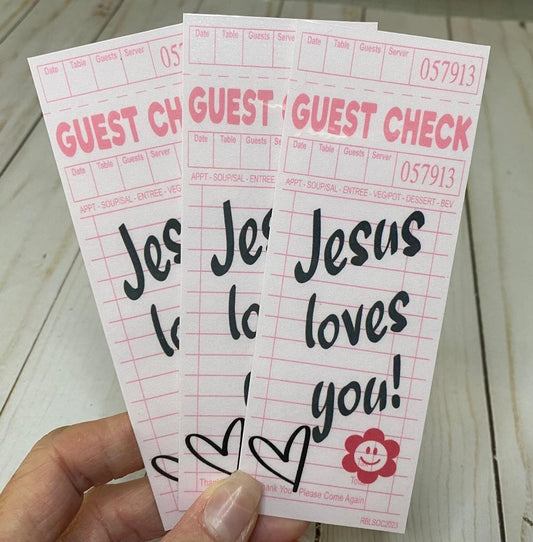 Date Table Guests Server 057
GUEST CHECK
Date Table Guests Server 057
APPT - SOUP/SAL - ENTREE - VEG
Jesus
lo
Date Table Guests Server
GUEST C
Date Table Guests Server
APPT - SOUP/SAL - ENTREE -
Jesus
lo
Date Table Guests Server 057913
GUEST CHECK
Date Table Guests Server 057913
APPT - SOUP/SAL - ENTREE - VEG/POT - DESSERT - BEV
Jesus
loves
you!
Thank You - Please Come Again
RBLSOC2023